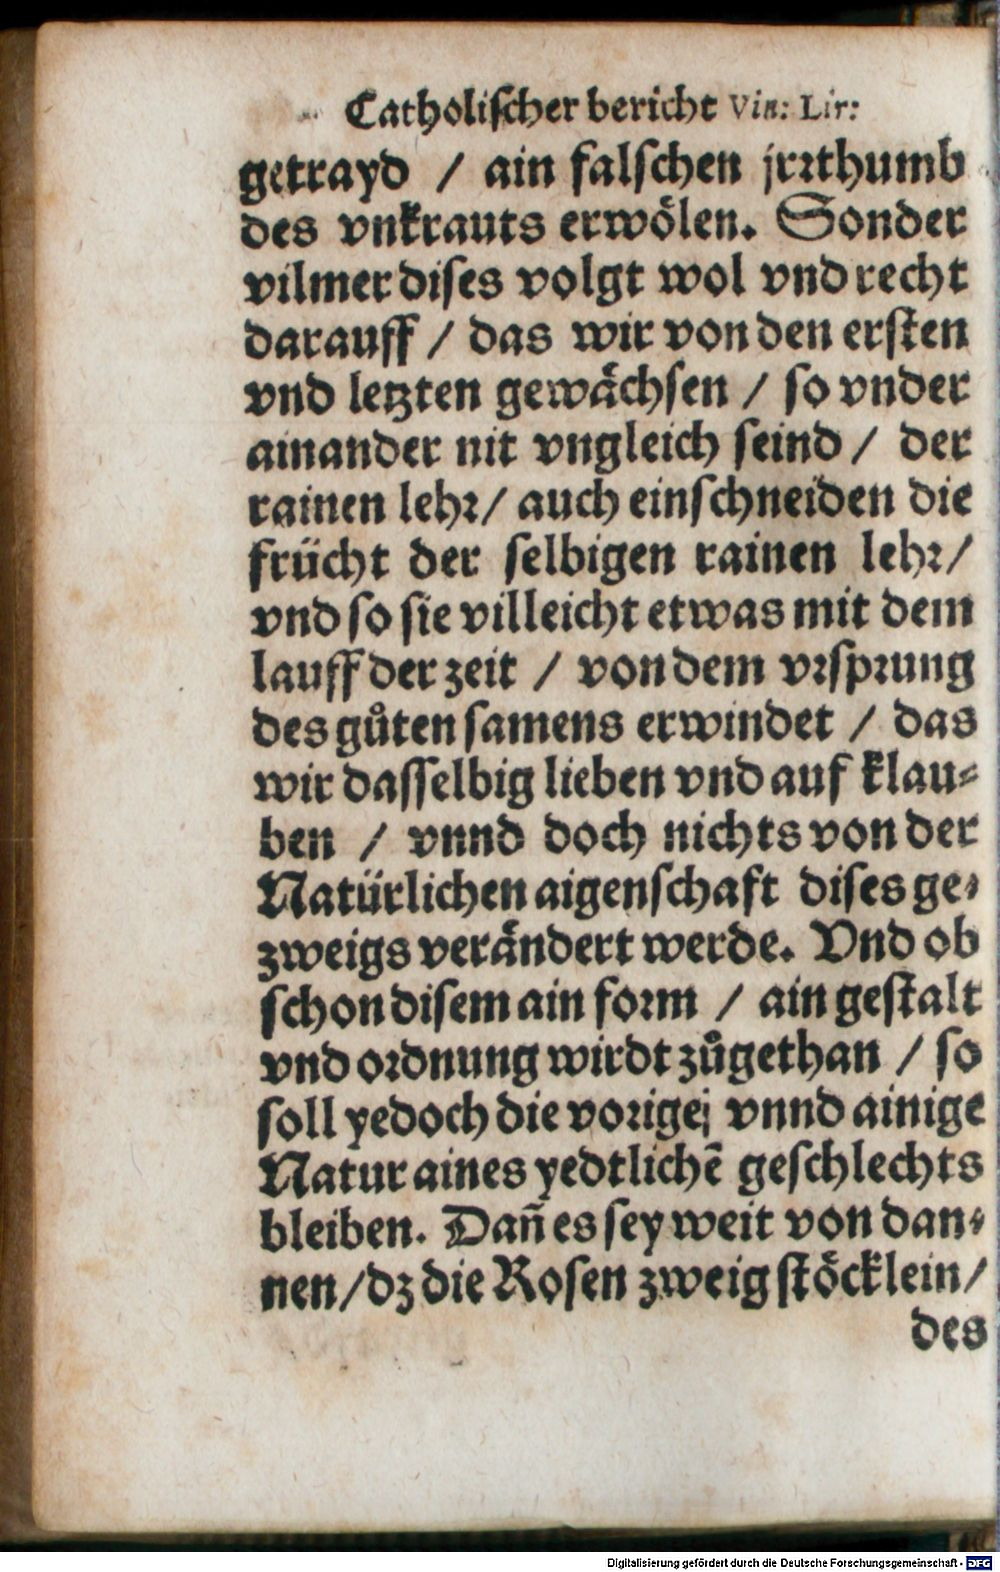 Catholischer bericht Vin: Lir:
getrayd / ain falschen jrrthumb
des vnkrauts erwölen. Sonder
vilmer dises volgt wol vnd recht
darauff / das wir von den ersten
vnd letzten gewächsen / so vnder
ainander nit vngleich seind / der
rainen lehr / auch einschneiden die
frücht der selbigen rainen lehr /
vnd so sie villeicht etwas mit dem
lauff der zeit / von dem vrsprung
des gůten samens erwindet / das
wir dasselbig lieben vnd auf klau-
ben / vnnd doch nichts von der
Natürlichen aigenschaft dises ge-
zweigs verändert werde. Vnd ob
schon disem ain form / ain gestalt
vnd ordnung wirdt zůgethan / so
soll yedoch die vorige; vnnd ainige
Natur aines yedtlichē geschlechts
bleiben. Dañ es sey weit von dan-
nen / dz die Rosen zweig stöcklein /
des
Digitalisierung gefördert durch die Deutsche Forschungsgemeinschaft - DFG